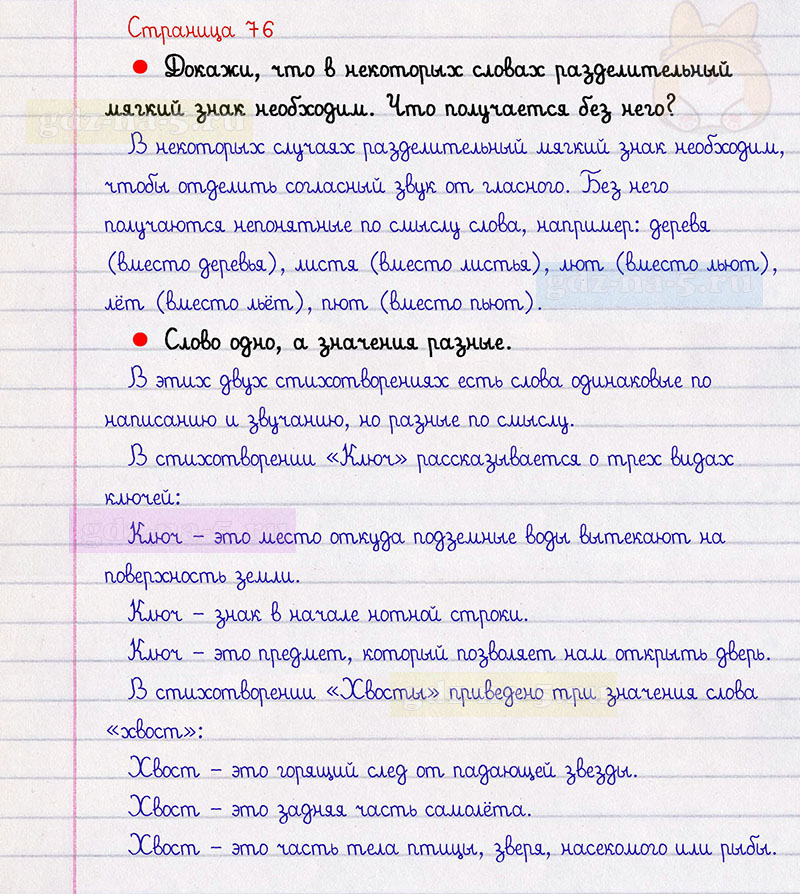 Страница 76
• Докажи, что в некоторых словах разделительный
мягкий знак необходим. Что получается без него?
gdz-na-5.ru
В некоторых случаях разделительный мягкий знак необходим,
чтобы отделить согласный звук от гласного. Без него
получаются непонятные по смыслу слова, например: деревя
(вместо деревья), листя (вместо листья), лют (вместо льют),
gdz-na-5.ru
лёт (вместо льёт), пют (вместо пьют).
• Слово одно, а значения разные.
В этих двух стихотворениях есть слова одинаковые по
написанию и звучанию, но разные по смыслу.
В стихотворении «Ключ» рассказывается о трех видах
ключей:
gdz-na-5.ru
Ключ – это место откуда подземные воды вытекают на
поверхность земли.
Ключ – знак в начале нотной строки.
Ключ – это предмет, который позволяет нам открыть дверь.
В стихотворении «Хвосты» приведено три значения слова
«хвост»:
Хвост – это горящий след от падающей звезды.
Хвост – это задняя часть самолёта.
Хвост – это часть тела птицы, зверя, насекомого или рыбы.